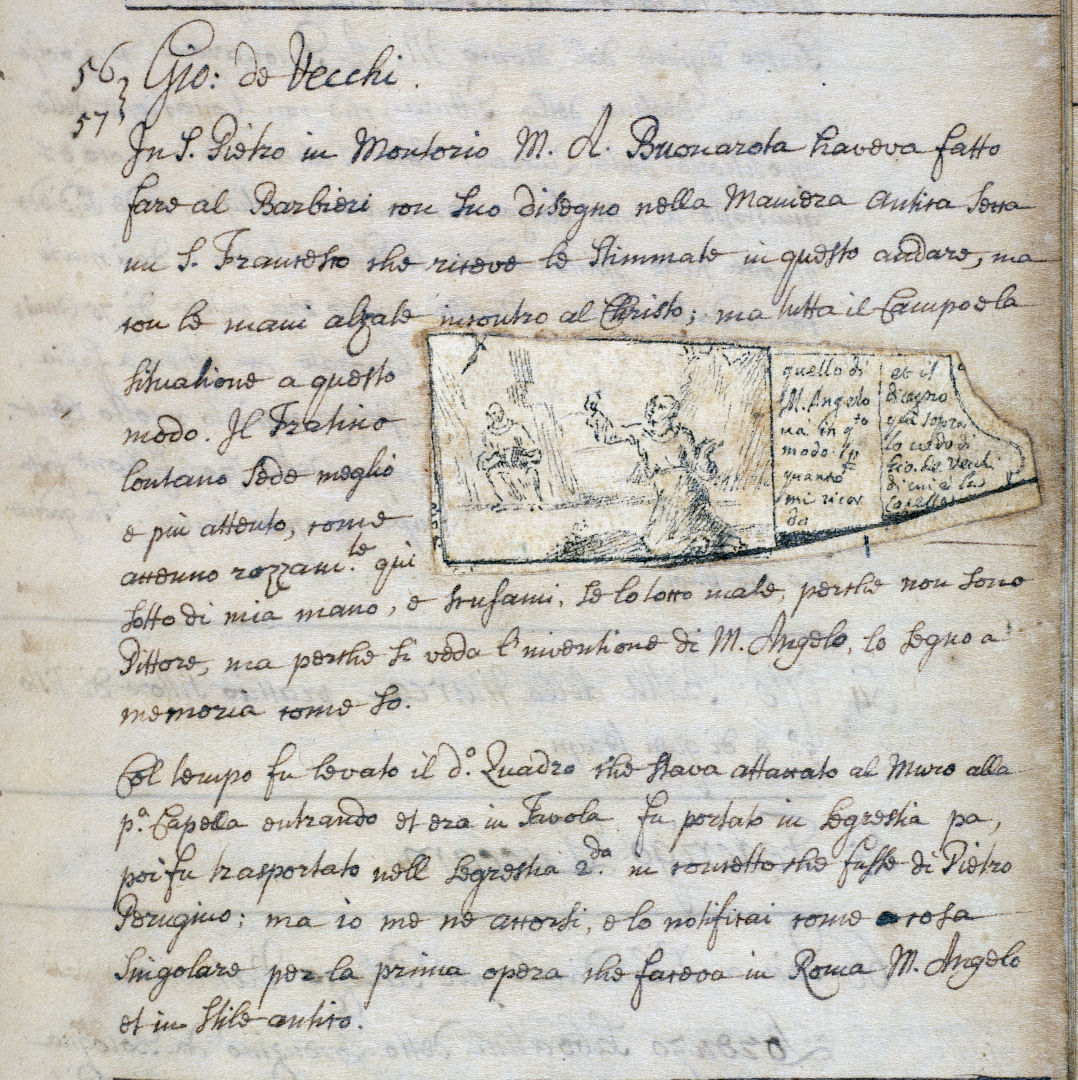 56 } Gio: de Vecchi.
57
In S. Pietro in Montorio M. A. Buonarota haveva fatto
fare al Barbieri con suo disegno nella Maniera antica secca
un S. Francesco che riceve le stimmate in questo andare, ma
con le mani alzate incontro al Christo; ma tutta il Campo e la
situatione a questo
modo. Il Fratino
lontano sede meglio
e più attento, come
accenno rozzam.te quì
sotto di mia mano, e scusami, se lo tocco male, perche non sono
Pittore, ma perche si veda l'inventione di M. Angelo, lo segno a
memoria come so.
quello di
M. Angelo
va in q.to
modo. p
quanto
mi ricor
da
et il
disegno
qui sopra
lo credo di
Gio. de Vecchi
di cui è la
Capella
Col tempo fu levato il d.o Quadro che stava attaccato al Muro alla
p.a Capella entrando et era in Tavola fu portato in segrestia pa,
poi fu trasportato nell segrestia 2.da in concetto che fusse di Pietro
Perugino: ma io me ne accorsi, e lo notificai come cosa
singolare per la prima opera che faceva in Roma M. Angelo
et in stile antico.